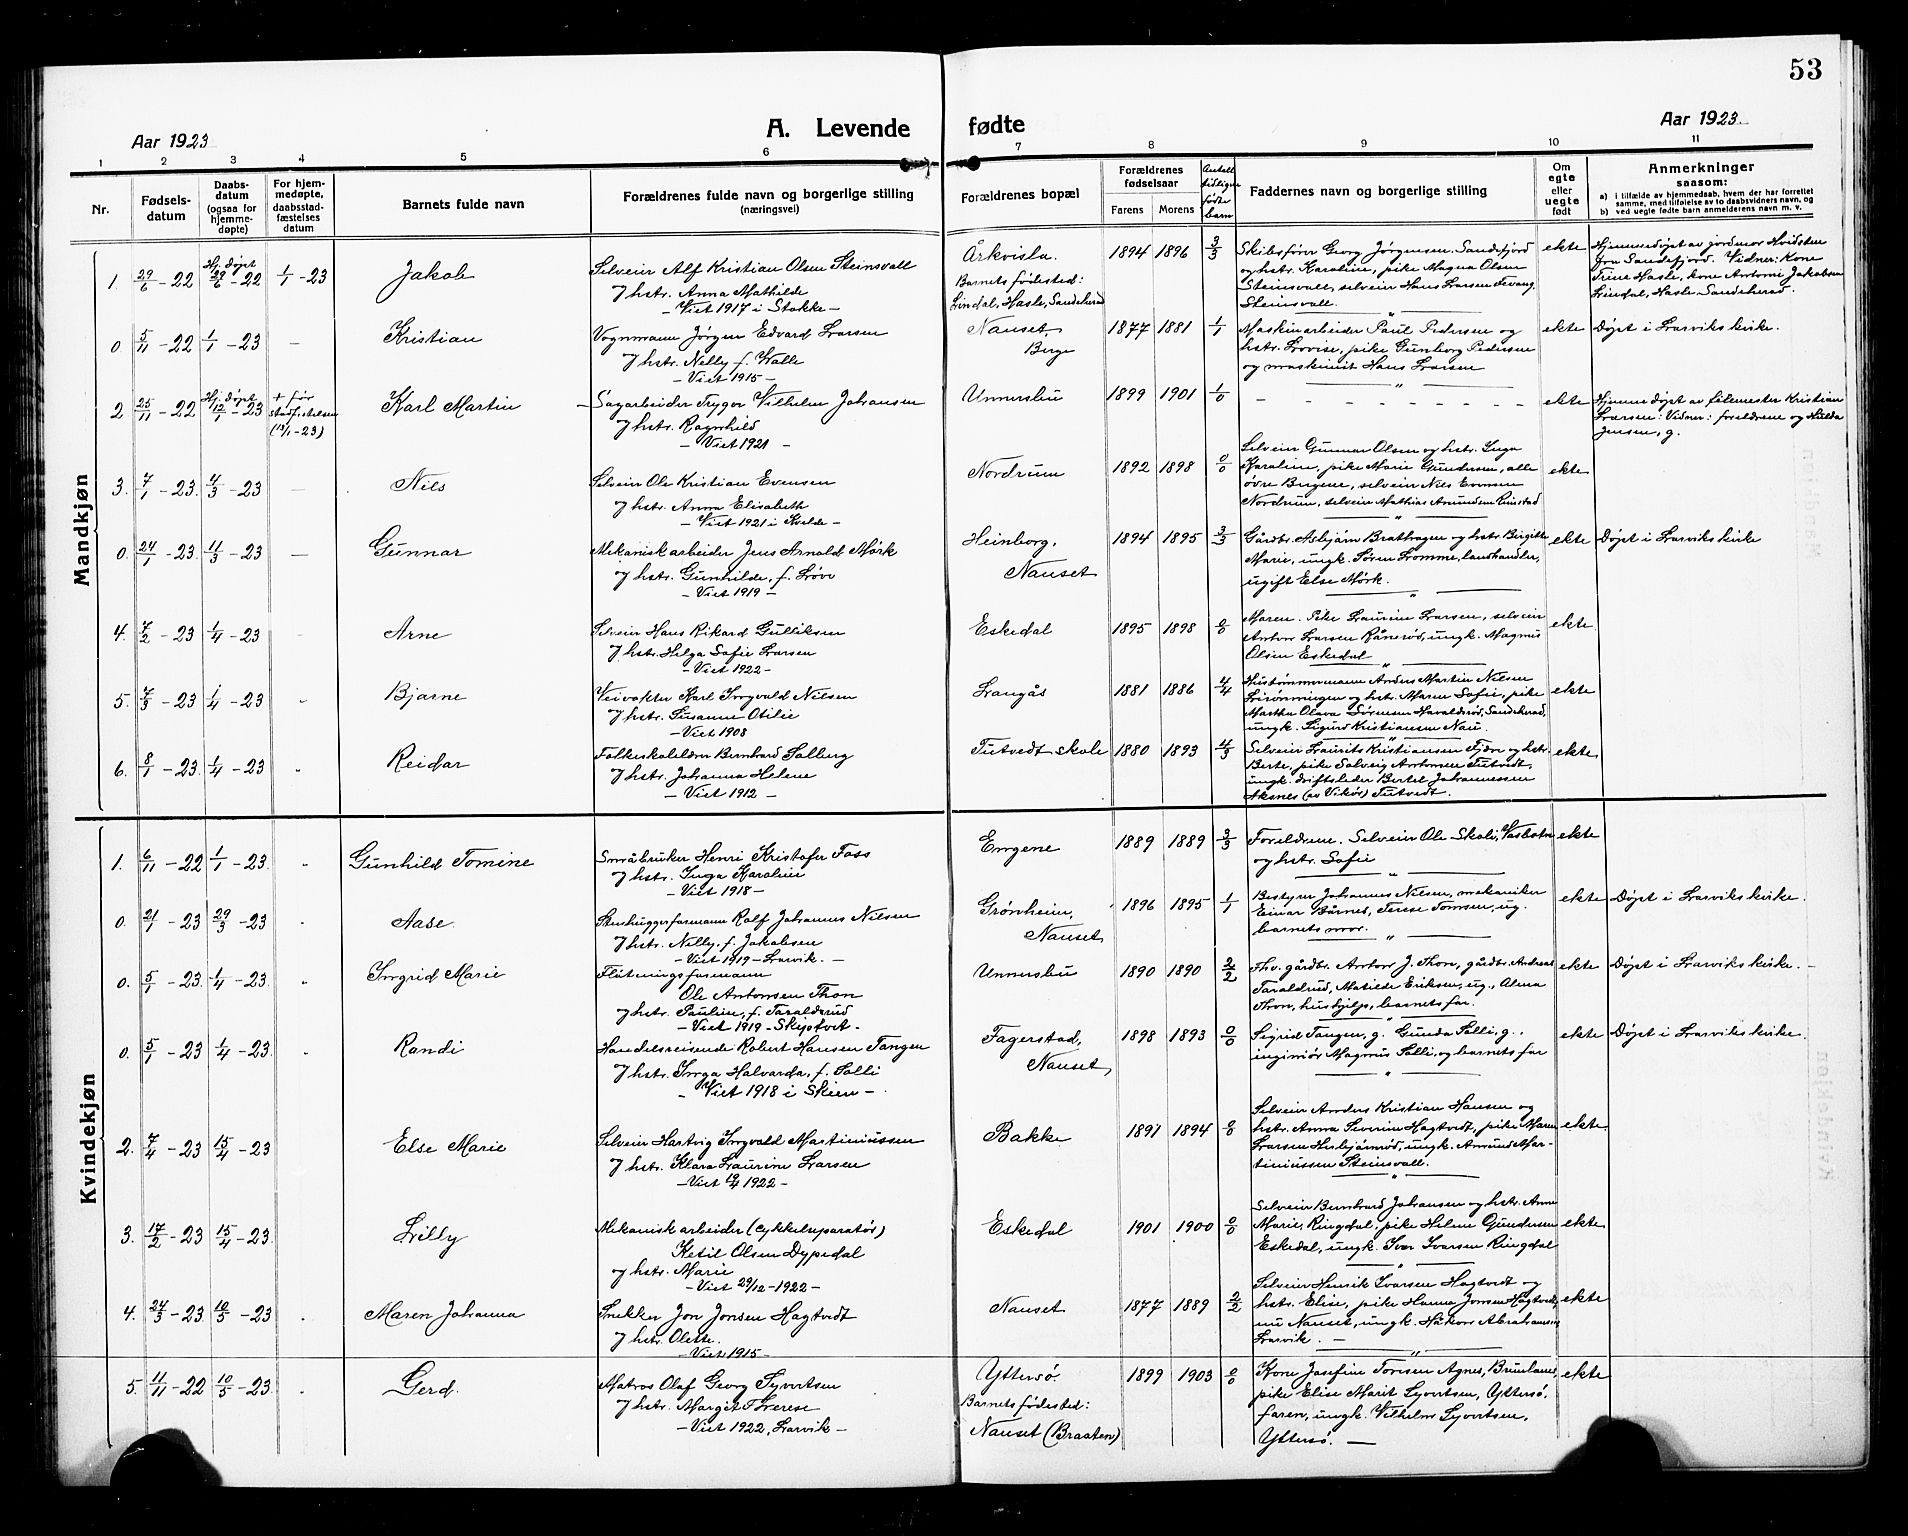 53
Aar 1923 A. Levende fødte Aar 1923
1 2 3 4 5 6 7 8 9 10 11
Nr. Fødselsdatum Daabsdatum (ogsaa for hjemmedøpte) For hjemmedøpte, daabsstadfæstelses datum Barnets fulde navn Forældrenes fulde navn og borgerlige stilling (næringsvei) Forældrenes bopæl Forældrenes fødselsaar Farens Morens Antall tidligere fødte barn Faddernes navn og borgerlige stilling Om egte eller uegte født Anmerkninger saasom:
a) i tilfælde av hjemmedaab, hvem der har forrettet samme, med tilføielse av to daabsvidners navn, og
b) ved uegte fødte barn anmelderens navn m. v.
Mandkjøn
1. 29/6 - 22 Hj.døpt 29/6 - 22 1/1 - 23 Jakob Selveier Alf Kristian Olsen Steinsvall Årkvisla. 1894 1896 3/3 Skibsfører Georg Jørgensen. Sandefjord ekte Hjemmedøpt av jordmor Hvidsten
og hstr. Anna Mathilde Barnets fødested: og hstr. Karoline, pike Magna Olsen fra Sandefjord. Vidner: Kone
- Viet 1917 i Stokke - Lindal, Hasle, Sandeherad Steinsvall, selveier Hans Larsen Levang, Trine Hasle, kone Antomi Jakobsen
Steinsvall. Lindal, Hasle, Sandeherad.
0. 5/11 - 22 1/1 - 23 — Kristian Vognmann Jørgen Edvard Larsen Nanset, 1877 1881 1/1 Maskinarbeider Paul Pedersen og ekte Døpt i Larviks kirke.
og hstr. Nelly f. Walle Berge hstr. Lovise, pike Gunborg Pedersen
- Viet 1915 - og maskinist Hans Larsen
2 25/11 - 22 Hj.døpt 12/1 - 23 + før stadfestelsen (13/1 - 23) Karl Martin Sagarbeider Trygve Wilhelm Johansen Unnersbu 1899 1901 1/0 - - - - - - - - ekte Hjemmedøpt av filemester Kristian
og hstr. Ragnhild Larsen: Vidner: foreldrene og Hilda
- Viet 1921 - Jensen, g.
3. 7/1 - 23 4/3 - 23 — Nils Selveier Ole Kristian Evensen Nordrum 1892 1898 0/0 Selveier Gunnar Olsen og hstr. Inga ekte
og hstr. Anna Elisabeth Karoline, pike Marie Gundersen, alle
- Viet 1921 i Kvelde - øvre Bergene, selveier Nils Evensen
Nordrum, selveier Mathias Amundsen Rimstad
0. 24/1 - 23 11/3 - 23 — Gunnar Mekanisk arbeider Jens Arnold Mørk Heinborg, 1894 1895 3/3 Gårdbr. Asbjørn Brathagen og hstr. Birgitte ekte Døpt i Larviks kirke
og hstr. Gunhilde, f. Løve Nanset Marie, ungk. Søren Lomme, landhandler,
- Viet 1919 - ugift Else Mørk.
4. 7/2 - 23 1/4 - 23 Arne Selveier Hans Rikard Gulliksen Eskedal 1895 1898 0/0 Moren. Pike Laurine Larsen, selveier ekte.
og hstr. Helga Sofie Larsen Anton Larsen Rånerød, ungk. Magnus
- Viet 1922 - Olsen Eskedal
5. 7/3 - 23 1/4 - 23 Bjarne Veivokter Karl Ingvald Nilsen Langås 1881 1886 4/4 Hustømmermann Anders Martin Nilsen ekte
og hstr. Susanne Otilie og hstr. Maren Sofie, pike
- Viet 1908 Martha Olava Sørensen Haraldsrød, Sandeherad,
ungk. Sigurd Kristiansen Nau.
6. 8/1 - 23 1/4 - 23 Reidar Folkeskolelærer Bernhard Solberg Tutvedt skole 1880 1893 4/3 Selveier Laurits Kristiansen og hstr. ekte
og hstr. Johanna Helene Berte, pike Solveig Antonsen Tutvedt,
- Viet 1912 - ungk. driftsleder Bertel Johannessen
Aksnes (av Vikør) Tutvedt.
Kvindekjøn
1. 6/11 - 22 1/1 - 23 Gunhild Tomine Småbruker Henri Kristofer Foss Emgene 1889 1889 3/3 Foreldrene. Selveier Ole Skoli, Vasbotn ekte
og hstr. Inga Karoline og hstr. Sofie
- Viet 1918 -
0. 21/1 - 23 29/3 - 23 Aase. Stenhuggerformann Rolf Johannes Nilsen Grønheim, 1896 1895 1/1 Bestyrer Johannes Nilsen, mekaniker ekte Døpt i Larviks kirke.
og hstr. Nelly, f. Jakobsen Nanset Einar Bårnes, Terese Tomsen, ug.
- Viet 1919 - Larvik. - barnets mor.
0. 5/1 - 23 1/4 - 23 Ingrid Marie Fløtningsformann Unnersbu 1890 1890 2/2 Fhv. gårdbr. Anton J. Thon, gårdbr. Andreas ekte Døpt i Larviks kirke. -
Ole Antonsen Thon Taraldrud, Matilde Eriksen, ug., Alma
og hstr. Pauline, f. Taraldsrud Thon, hushjelp, barnets far.
- Viet 1919 - Skiptvet -
0. 5/1 - 23 1/4 - 23 Randi Handelsreisende Robert Hansen Tangen Fagerstad, 1898 1893 0/0 Sigrid Tangen, g. Gunda Solli, g., ekte Døpt i Larviks kirke.
og hstr. Inga Halvarda, f. Solli Nanset ingeniør Magnus Solli, og barnets far
- Viet 1918 i Skien -
2. 7/4 - 23 15/4 - 23 Else Marie Selveier Hartvig Ingvald Martiniussen Bakke 1891 1894 0/0 Selveier Anders Kristian Hansen og ekte
og hstr. Klara Laurine Larsen hstr. Anna Severine Hagtvedt, pike Maren
- Viet 1922 - Larsen Hesbjørnrød, ungk. Amund Mar-
tiniussen Steinsvall.
3. 17/2 - 23 15/4 - 23 Lilly Mekanisk arbeider (cykkelreparatør) Eskedal 1901 1900 0/0 Selveier Bernhard Johansen og hstr. Anne ekte
Ketil Olsen Dypedal Marie, Ringdal, pike Helene Gundersen
og hstr. Marie Eskedal, ungk. Ivar Ivarsen Ringdal
- Viet 29/12 - 1922 -
4. 24/3 - 23 10/5 - 23 Maren Johanna Snekker Jon Jonsen Hagtvedt Nanset 1877 1889 2/2 Selveier Henrik Ivarsen Hagtvedt og ekte
og hstr. Olette. hstr. Elise, pike Hanna Jonsen Hagtvedt,
- Viet 1915 - nu Nanset, ungk. Håkon Abrahamsen
Larvik. -
5. 11/11 - 22 10/5 - 23 Gerd. Matros Olaf Georg Syvertsen Yttersø. 1899 1903 0/0 Kone Josefine Torsen Agnes, Brunlanes, ekte
og hstr. Margit Therese Barnets fødested: pike Elise Marit Syvertsen, Yttersø,
- Viet 1922, Larvik - Nanset (Braaten) faren, ungk. Vilhelm Syvertsen,
Yttersø. —